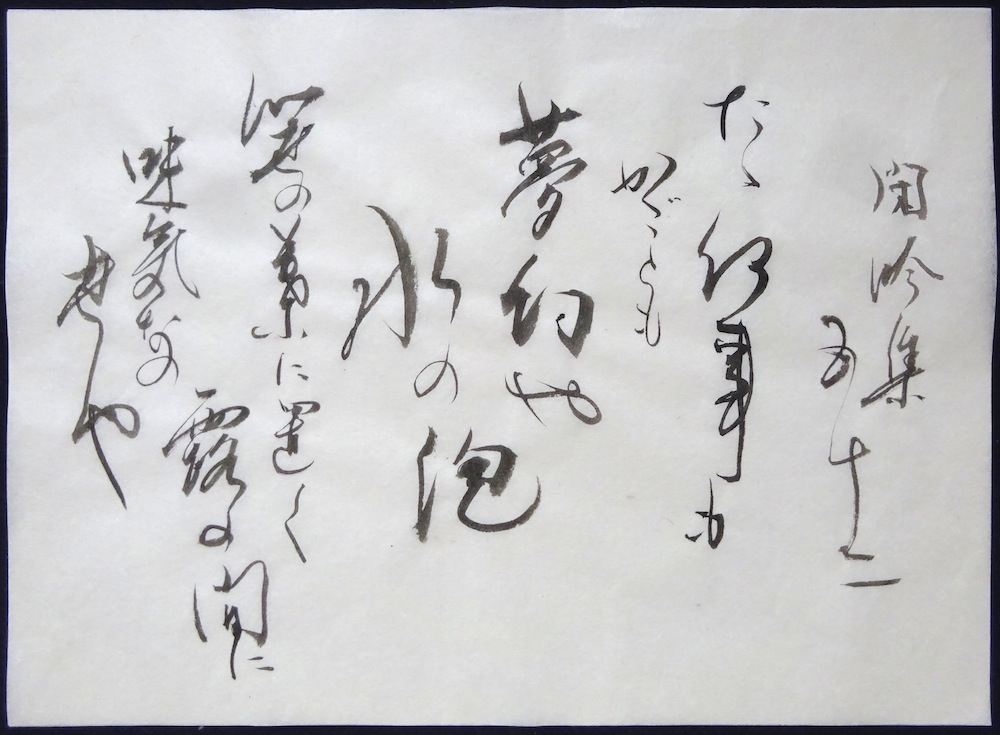 閑吟集
五十二
たゝ何事も
かごとも
夢幻や
水の泡
笹の葉に置く
露の間に
味気なの
世や